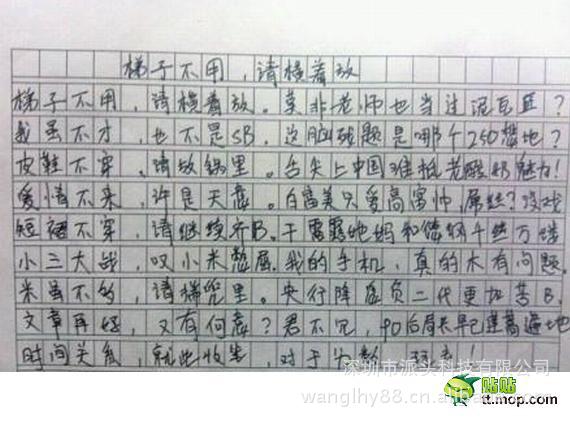 梯子不用，请横着放
梯子不用，请横着放。莫非老师也当过泥瓦匠？
我虽不才，也不是SB。这脑残题是哪个250想地？
皮鞋不穿，请放锅里。舌尖上中国难抵老酸奶魅力！
爱情不来，许是天意。白富美只爱高富帅，屌丝？没戏
短裙不穿，请继续齐B。干露露她妈和伦钢千丝万
小三大战，叹小米憋屈。我的手机，真的木有问题。
米虽不多，请揣兜里。央行降息负二代更加苦B.
文章再好，又有何意？君不见，90后局长早已遍地
时间关系，就此收笔，对于分数，
深圳市派头科技有限公司
wanglhy88.cn.alibaba.com
贴贴
tt.mop.com